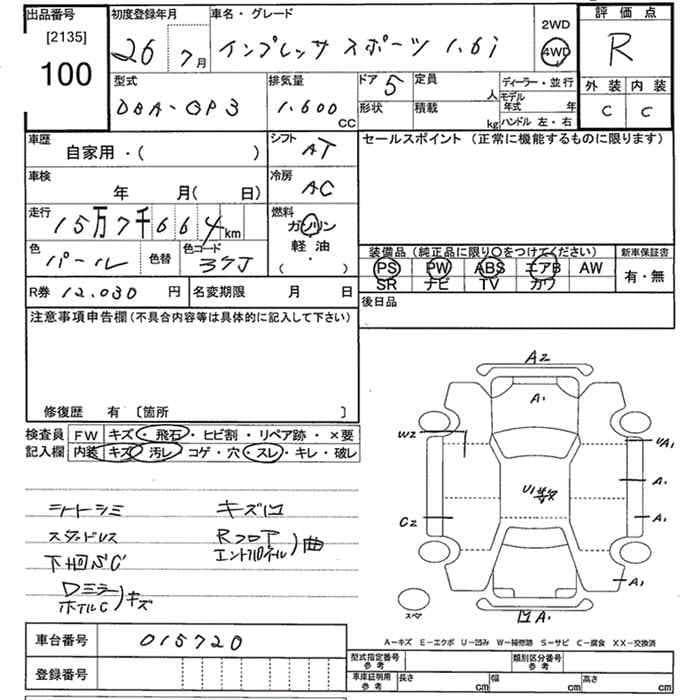 出品番号 初度登録年月 車名・グレード 2WD 評価点
[2135] 26 7月 インプレッサ スポーツ 1.6i 4WD R
100
型式 排気量 ドア 5 定員 人 ディーラー・並行 外装 内装
DBA-GP3 1.600 CC 形状 積載 kg モデル年式 年 C C
ハンドル 左・右
車歴 シフト セールスポイント (正常に機能するものに限ります)
自家用・( ) AT
車検 冷房
年 月( 日) AC
走行 燃料
15万7千664km ガソリン
軽油
・
( )
色 色替 色コード 装備品(純正品に限り○をつけてください) 新車保証書
パール 37J PS PW ABS エアB AW 有・無
SR ナビ TV カワ
R券 12,030円 名変期限 月 日 後日品
注意事項申告欄(不具合内容等は具体的に記入して下さい)
修復歴 有 [箇所 ]
検査員 FW キズ・飛石・ヒビ割・リペア跡・×要
記入欄 内装 キズ・汚レ・コゲ・穴・スレ・キレ・破レ
シートシミ キズ凹
スタッドレス Rフロア
エンドパネル)曲
下回SC
Dミラー
ホイルC)キズ
A2
A1
W2 UA1
U1等数 A1
C2 A1
A1
スペア 凹A1
A=キズ E=エクボ U=凹み W=補修跡 S=サビ C=腐食 XX=交換済
車台番号 015720
登録番号
型式指定番号 参考 類別区分番号 参考
車庫証明用 参考 長さ cm 幅 cm 高さ cm